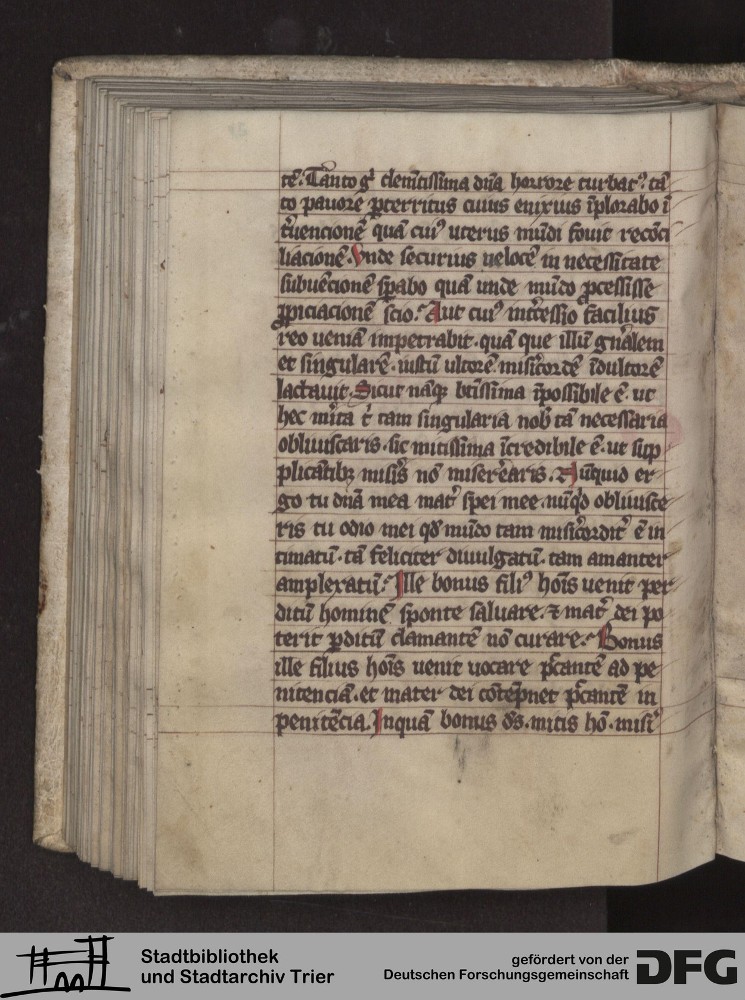 te. Tanto gͥ clemētissima dn̄a horrore turbatꝰ. tā
to pauore ꝑterritus cuius enixius īplorabo ī
t̄uencionē quā cuiꝰ uterus mūdi fouit recōci
liacionē. Unde securius uelocē in necessitate
subuēcionē sꝑabo quā unde mūdo ꝓcessisse
ꝓpiciacionē scio. Aut cuiꝰ int̄cessio facilius
reo ueniā impetrabit. quā que illū gn̄alem
et singularē. iustū ultorē. misic̄ordē īdultorē
lactauit. Sicut nāqꝫ btīssima īpossibile ē. ut
hec mīta t̄ tam singularia nob̄ tā necessaria
obliuiscaris. sic mitissima īcredibile ē. ut sup
plicātibꝫ misīs nō misereāris. Nūquid er
go tu dn̄a mea mat̄ spei mee. nūqͥd obliuisce
ris tu odio mei qd̄ mūdo tam misic̄ordit̄ ē in
timatū. tā feliciter diuulgatū. tam amanter
amplexatū. Ille bonus filiꝰ hoīs uenit per
ditū hominē sponte saluare. ⁊ mat̄ dei po
terit ꝑditū clamantē nō curare. Bonus
ille filius hoīs uenit uocare p̄cantē ad pe
nitenciā. et mater dei cōtēpnet p̄cantē in
penitēcia. Inquā bonus d̄s. mitis hō. misi
Stadtbibliothek
und Stadtarchiv Trier
gefördert von der
Deutschen Forschungsgemeinschaft
DFG